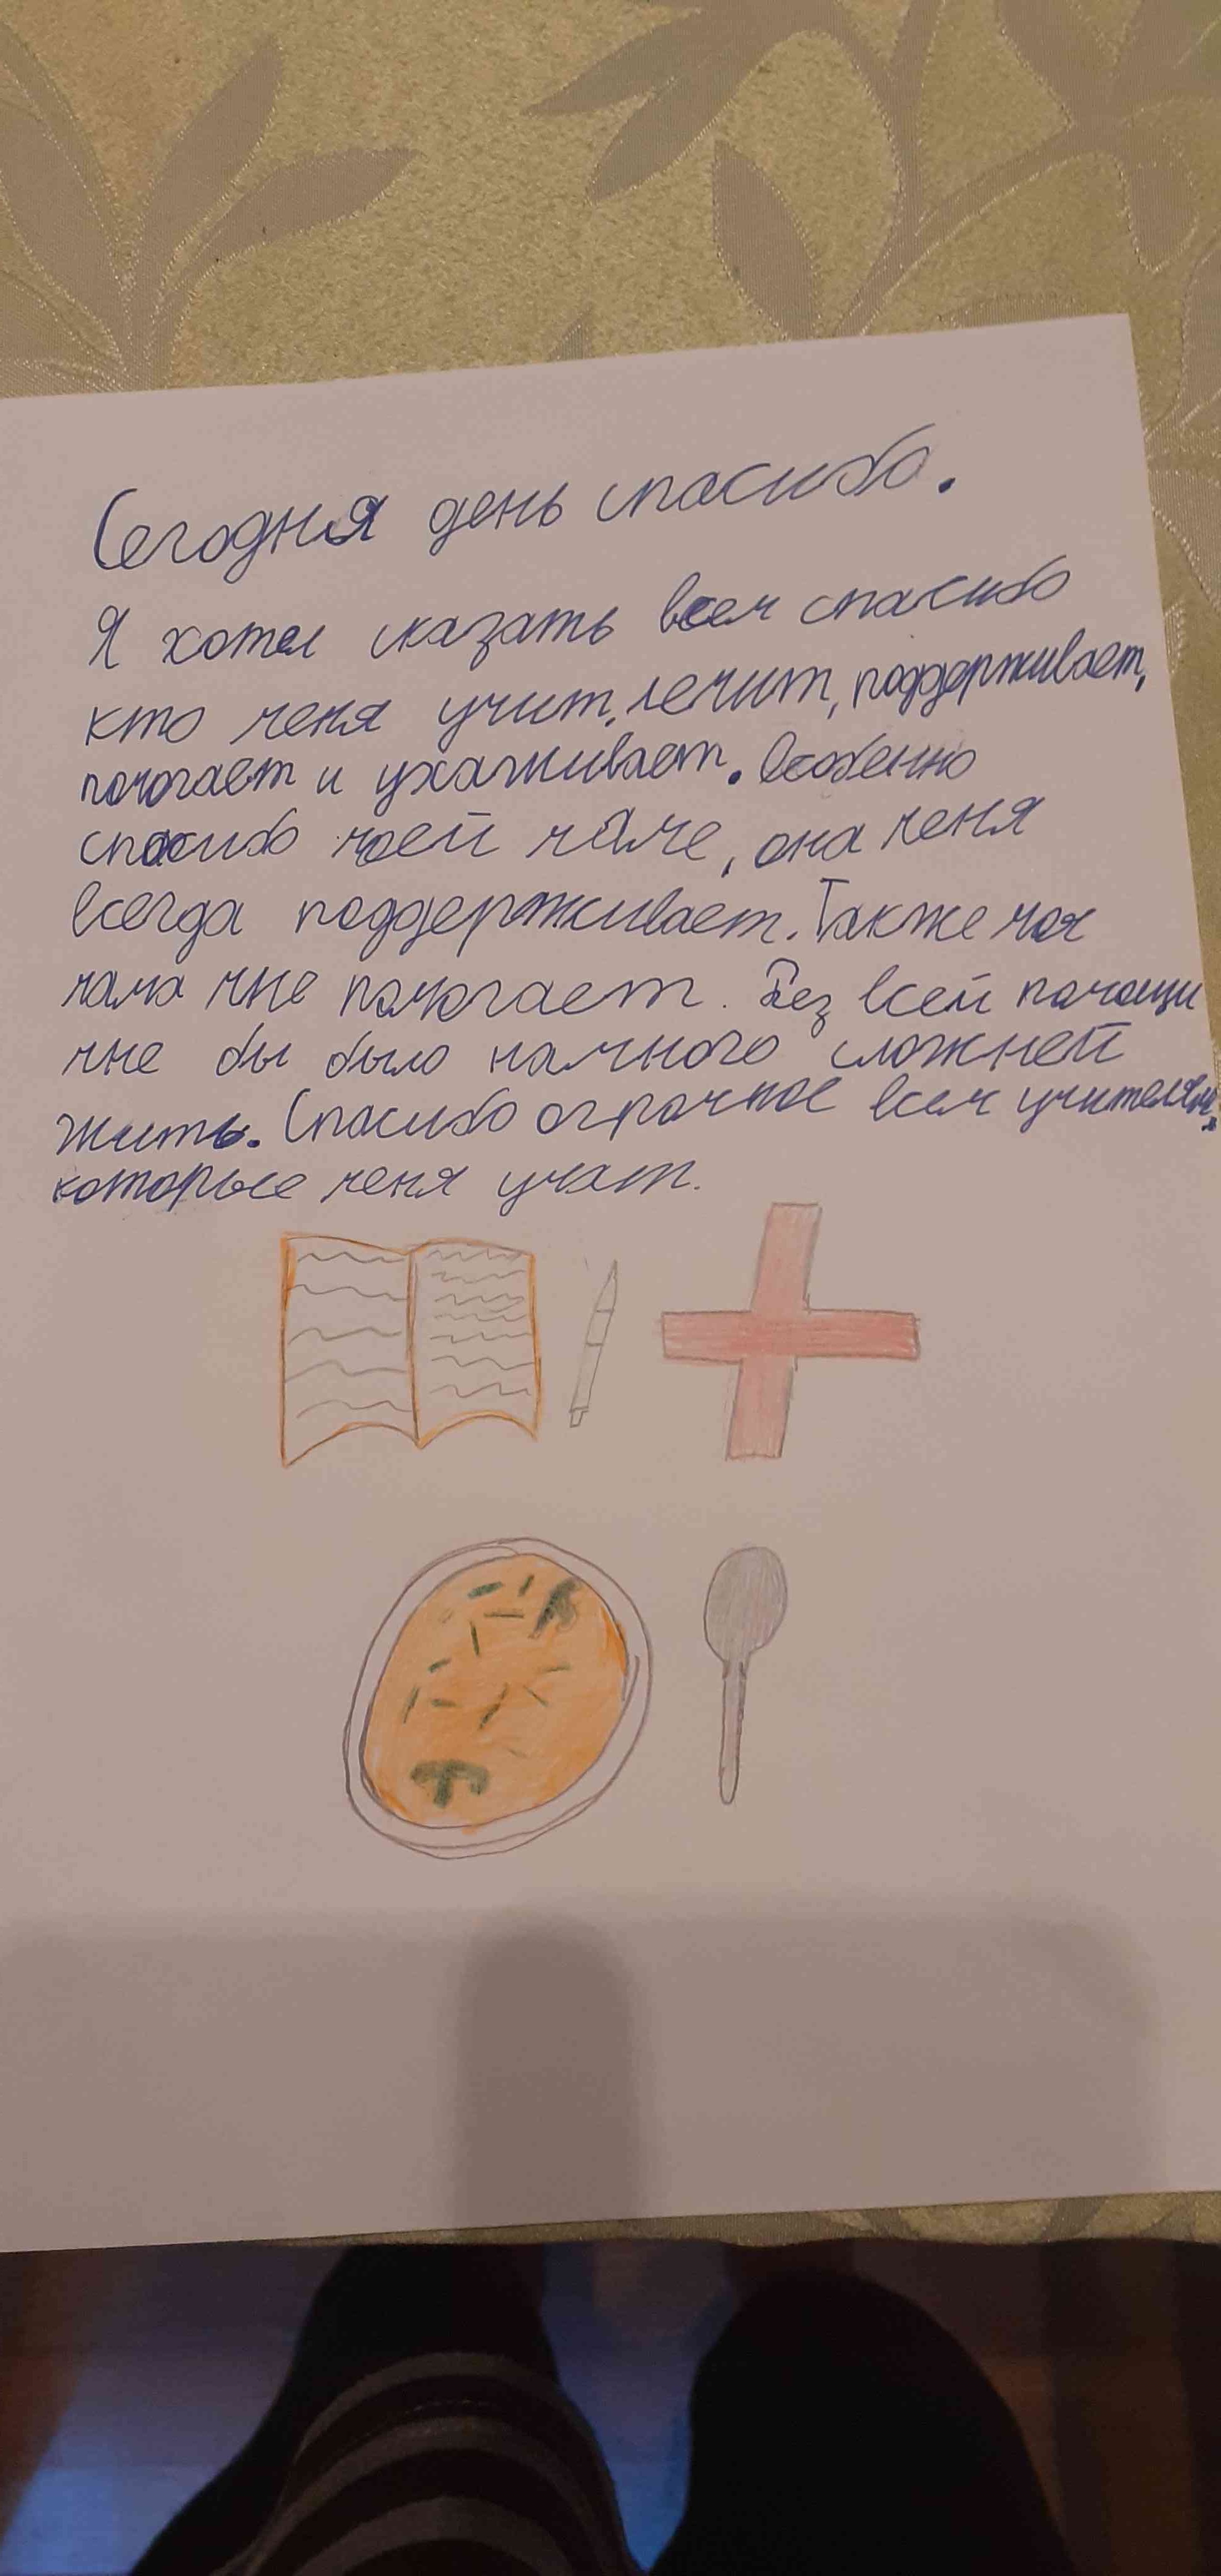 Сегодня день спасибо.
Я хотел сказать всем спасибо
кто меня учит, лечит, поддерживает,
помогает и ухаживает. Особенно
спасибо моей маме, она меня
всегда поддерживает. Также моя
мама мне помогает. Без всей помощи
мне бы было намного сложней
жить. Спасибо огромное всем учителям,
которые меня учат.